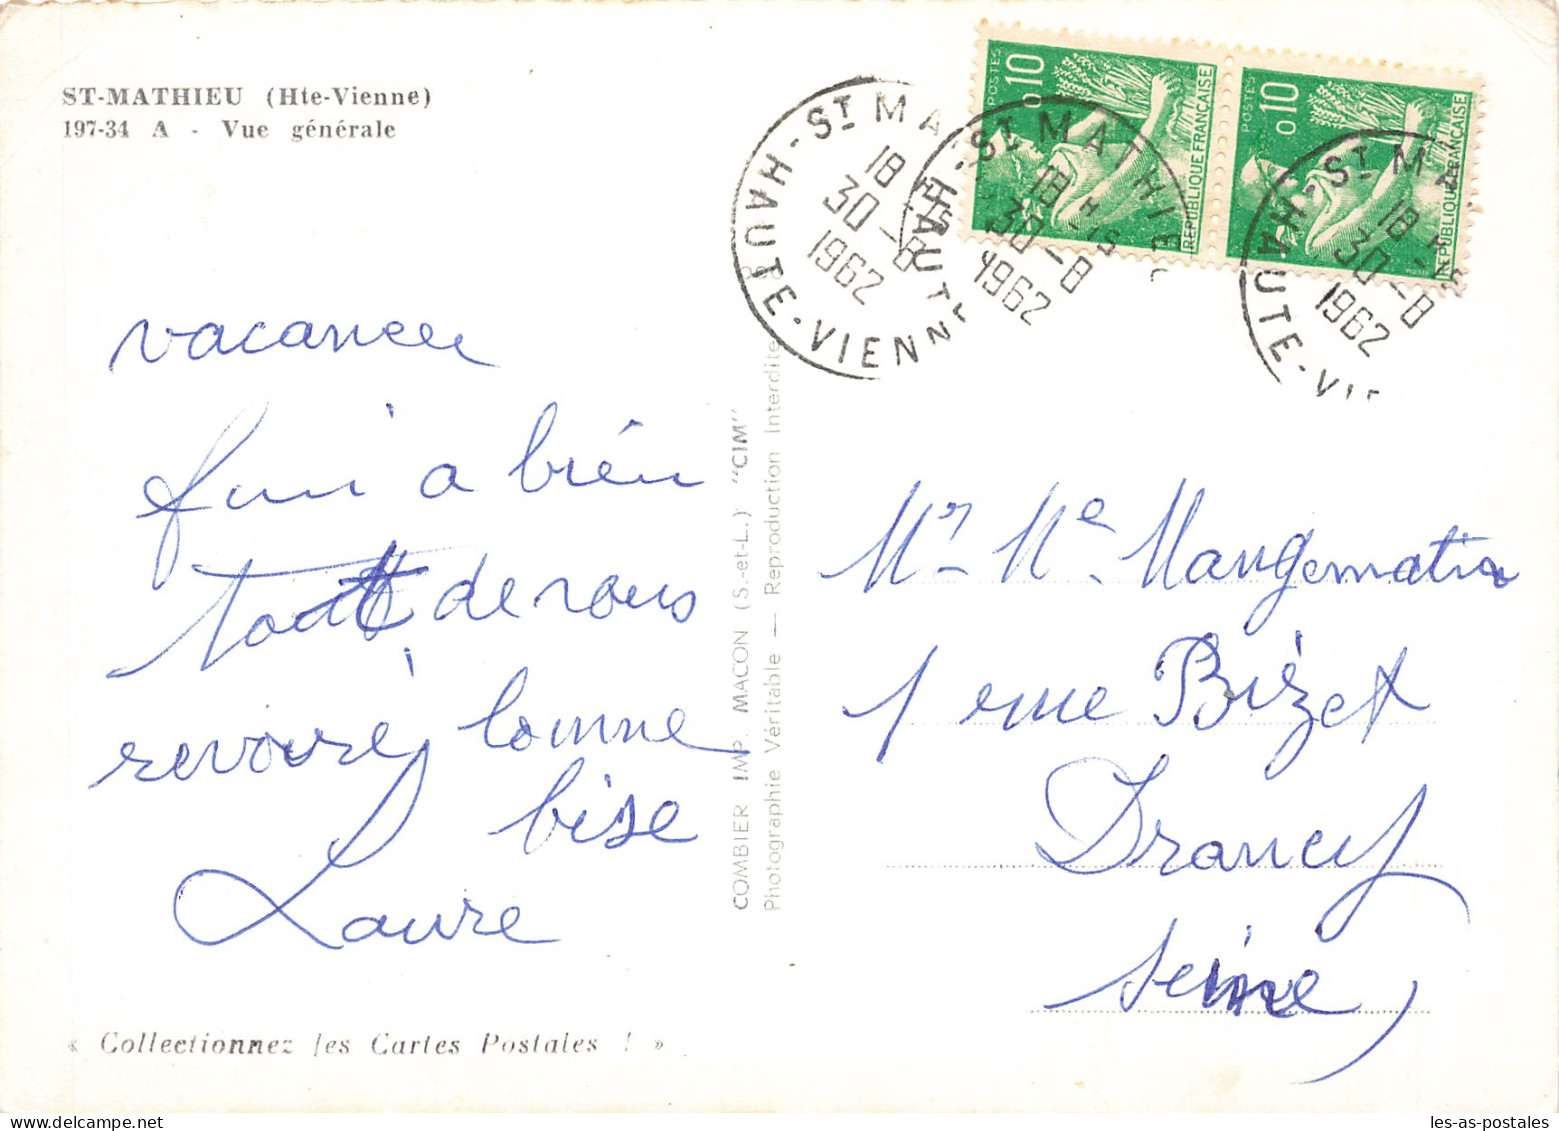 ST-MATHIEU (Hte-Vienne)
197-34 A - Vue générale
vacances
fini a bien
tout de vous
revoire, bonne
bise
Laure
« Collectionnez les Cartes Postales ! »
COMBIER IMP. MACON (S.-et-L.) "CIM"
Photographie Véritable — Reproduction Interdite
POSTES
0,10
REPUBLIQUE FRANÇAISE
POSTES
0,10
REPUBLIQUE FRANÇAISE
ST MA
18 H 15
30-8
1962
HAUTE-VIENNE
ST MATHIEU
18 H 15
30-8
1962
HAUTE
ST MA
18 H 15
30-8
1962
HAUTE-VIE
Mr Me Mangematin
1 rue Bizet
Drancy
Seine
les-as-postales